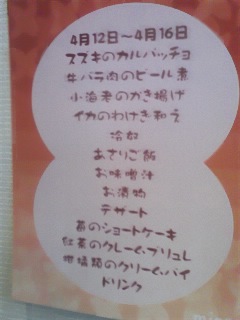 4月12日～4月16日
スズキのカルパッチョ
牛バラ肉のビール煮
小海老のかき揚げ
イカのわけぎ和え
冷奴
あさりご飯
お味噌汁
お漬物
デザート
苺のショートケーキ
紅茶のクレームブリュレ
柑橘類のクリームパイ
ドリンク